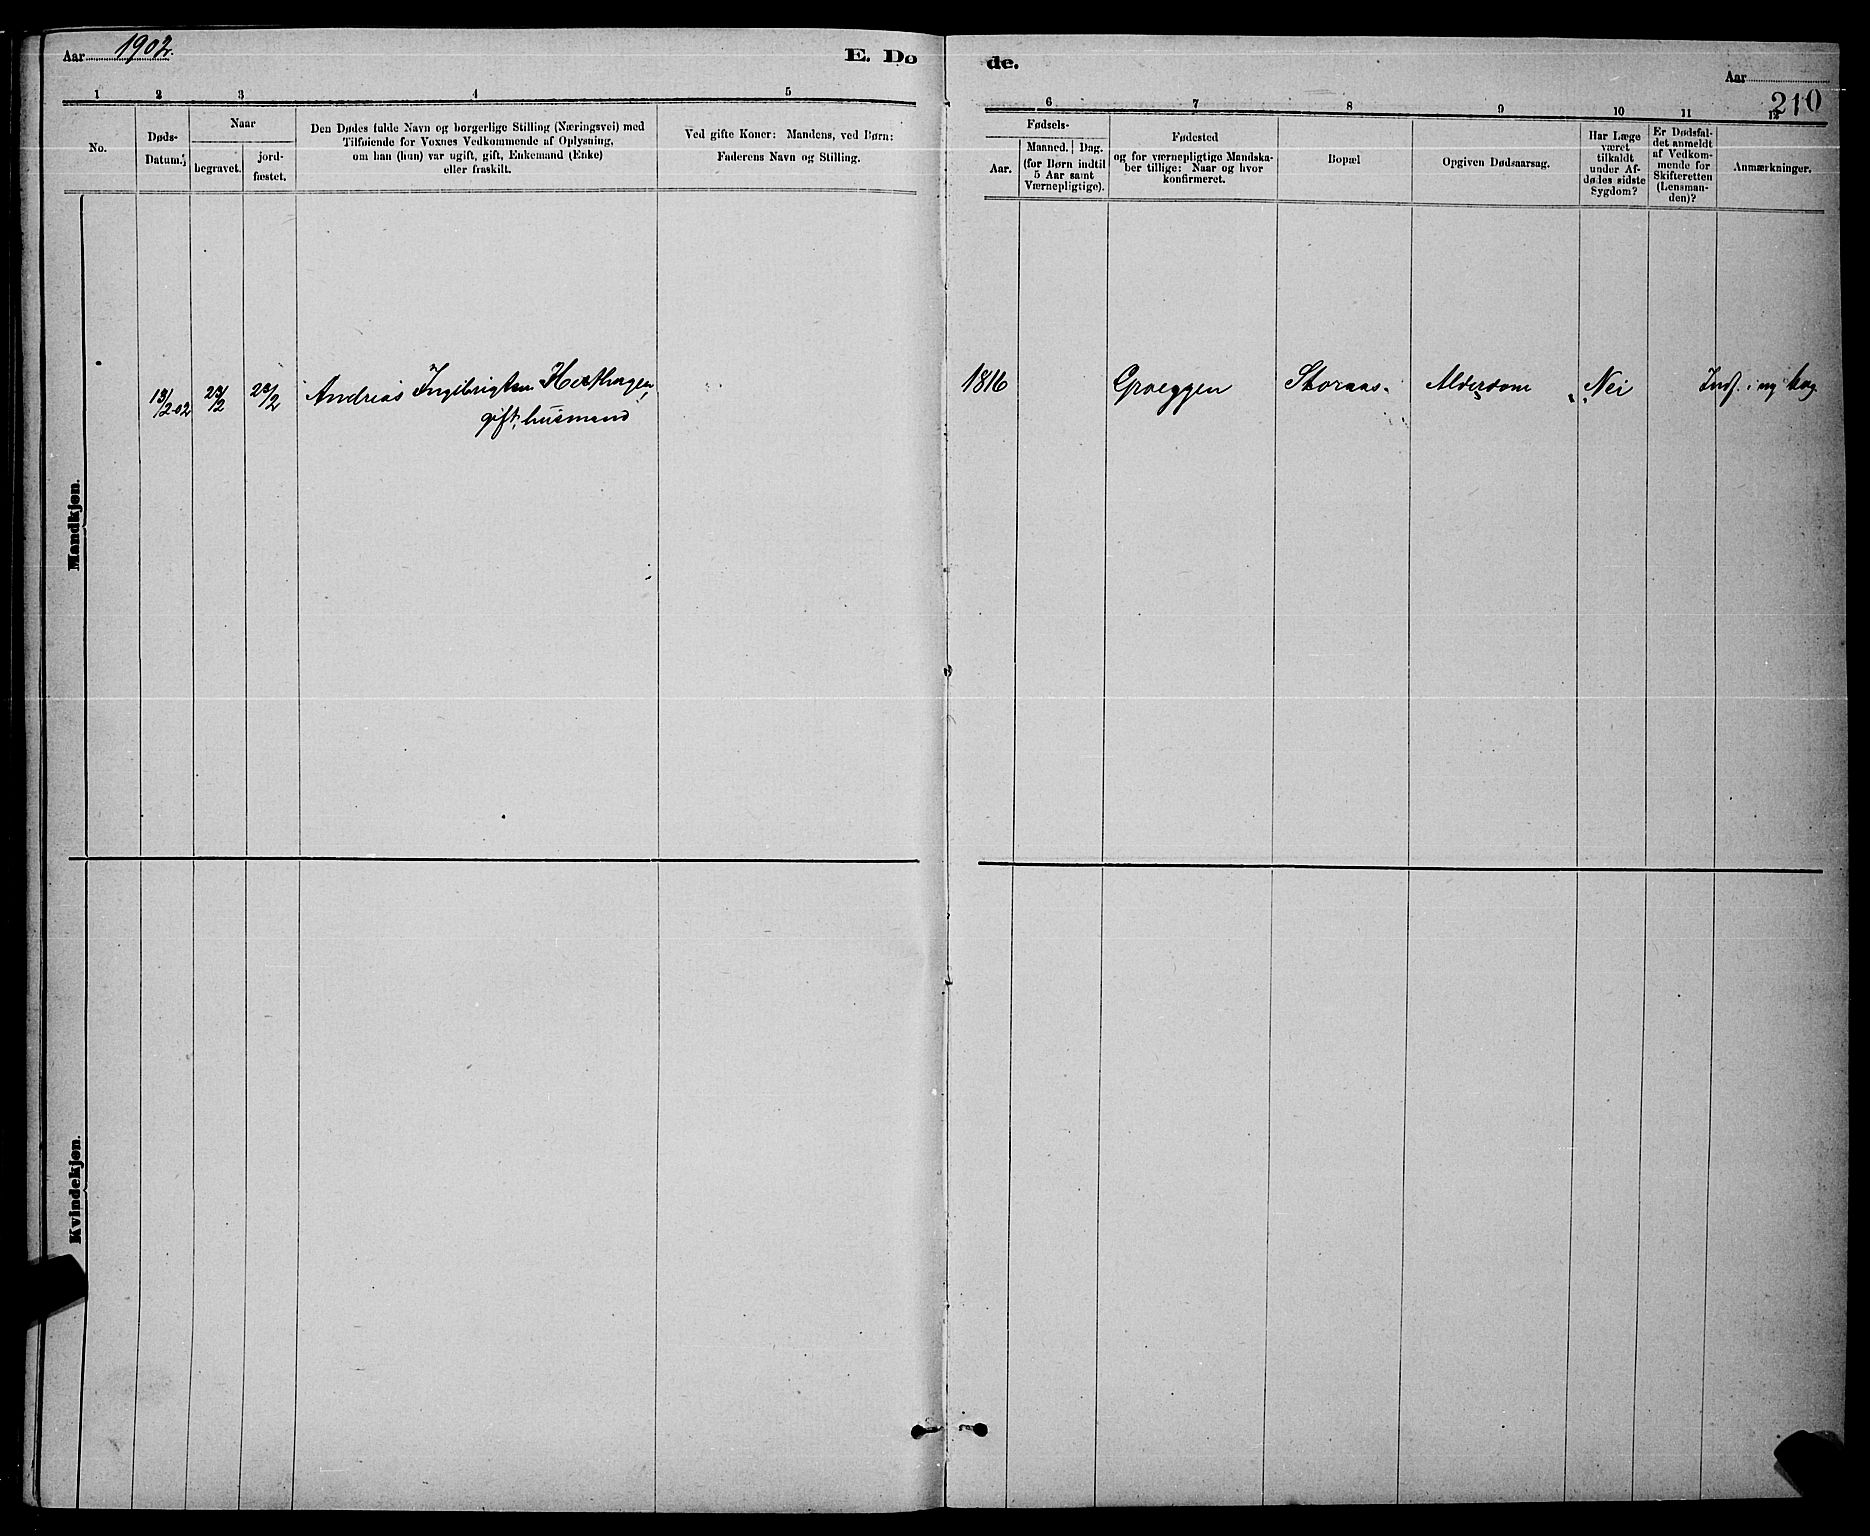 Aar 1902.
E. Dø
de.
Aar
210
1 2 3 4 5
6 7 8 9 10 11 12
No.
Døds-
Datum.
Naar
begravet.
jord-
fæstet.
Den Dødes fulde Navn og borgerlige Stilling (Næringsvei) med
Tilføiende for Voxnes Vedkommende af Oplysning,
om han (hun) var ugift, gift, Enkemand (Enke)
eller fraskilt.
Ved gifte Koner: Mandens, ved Børn:
Faderens Navn og Stilling.
Fødsels-
Aar.
Maaned. Dag.
(for Børn indtil
5 Aar samt
Værnepligtige).
Fødested
og for værnepligtige Mandska-
ber tillige: Naar og hvor
konfirmeret.
Bopæl
Opgiven Dødsaarsag.
Har Læge
været
tilkaldt
under Af-
dødes sidste
Sygdom?
Er Dødsfal-
det anmeldt
af Vedkom-
mende for
Skifteretten
(Lensman-
den)?
Anmærkninger.
Mandkjøn.
13/2 02 23/2 23/2 Andreas Ingebrigtsen
gift, husmand
1816 Storaas Alderdom Nei Indf. i ny bog
Kvindekjøn.